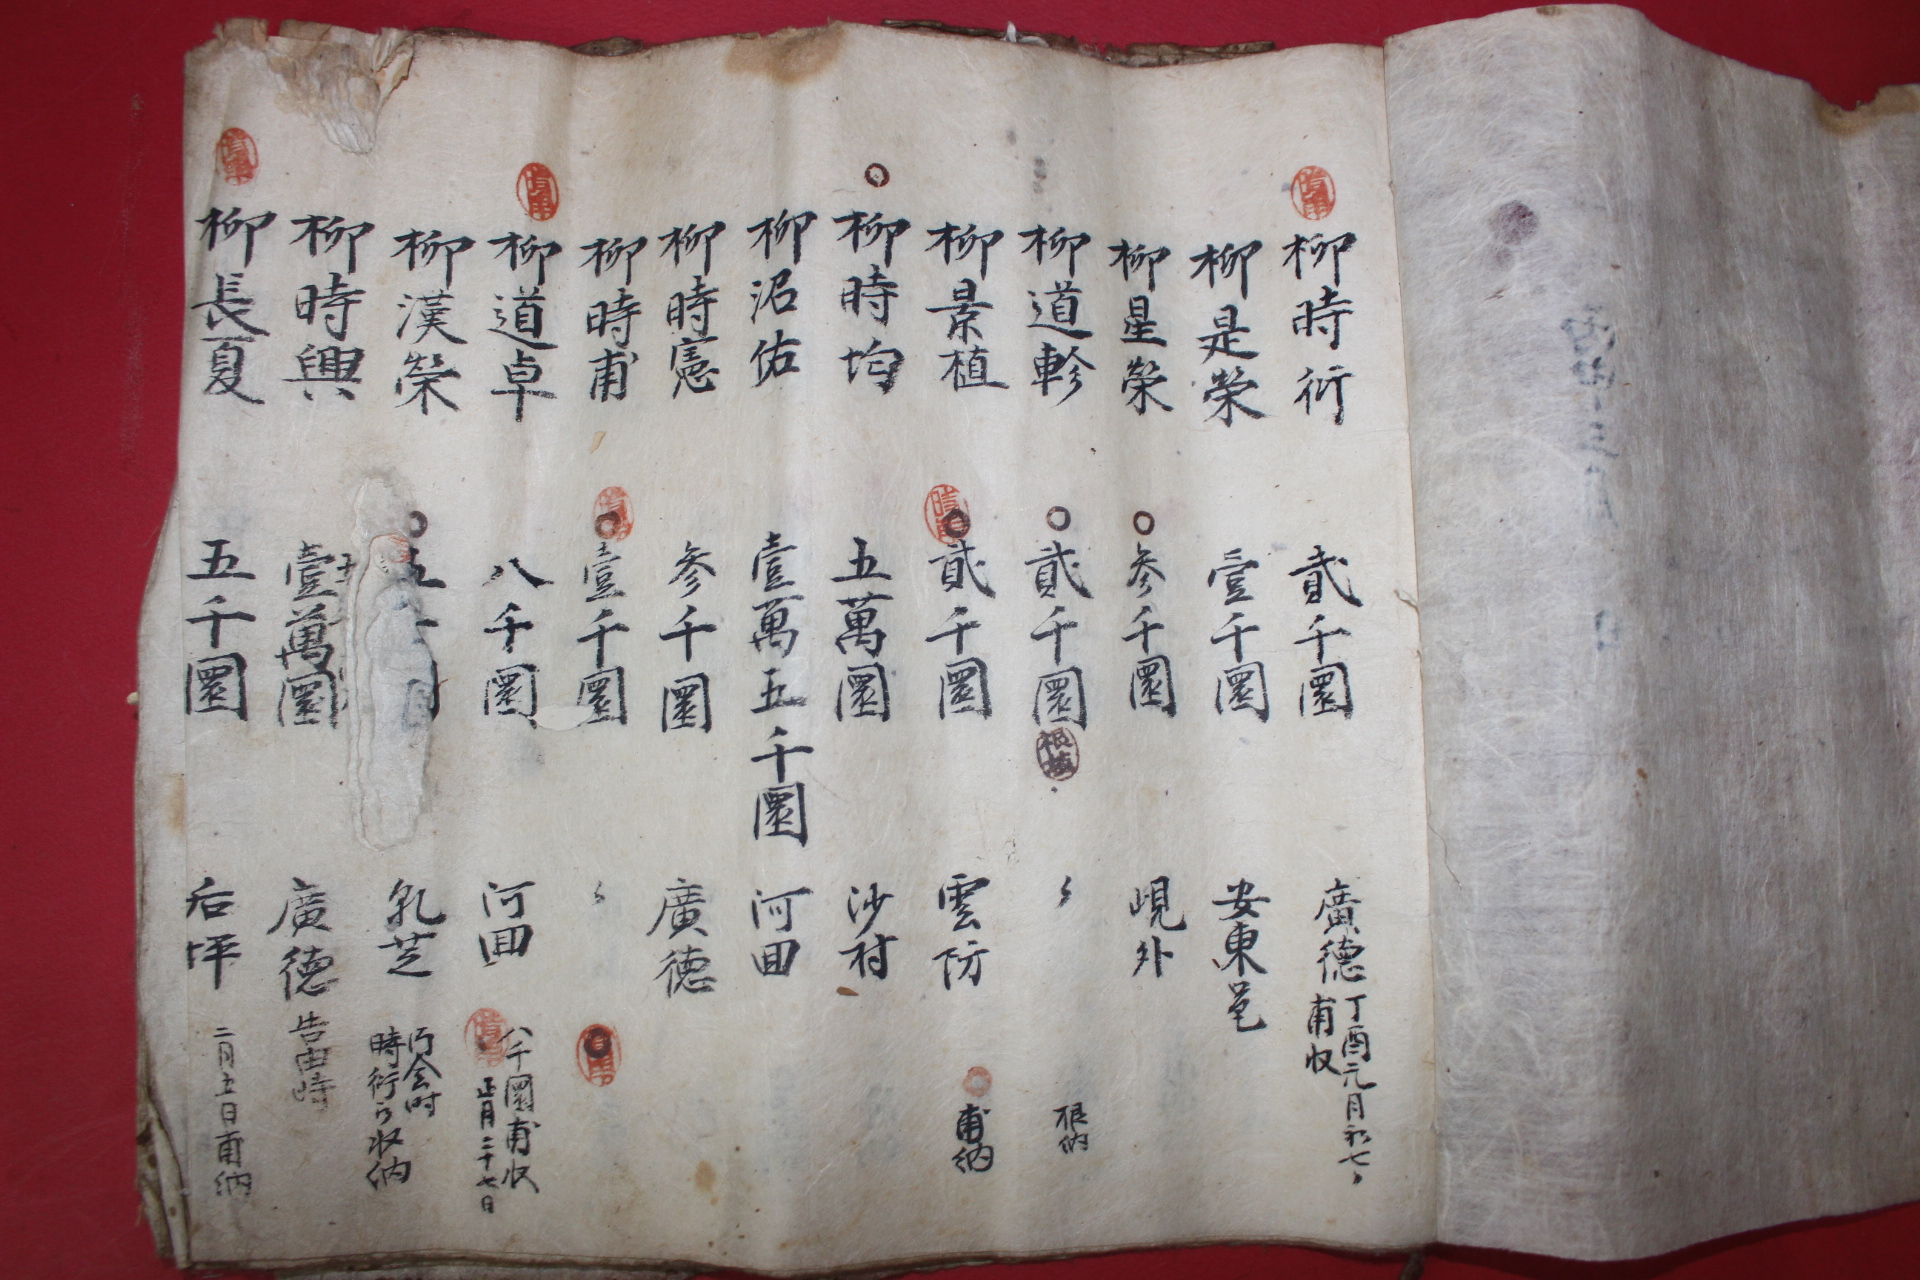 柳時衍 貳千圜 廣德 丁酉元月初七日 甫収
柳是榮 壹千圜 安東邑
柳星榮 參千圜 峴外
柳道軫 貳千圜 〻 根納
柳景植 貳千圜 雲防 甫納
柳時均 五萬圜 沙村
柳沼佑 壹萬五千圜 河回
柳時憲 參千圜 廣德
柳時甫 壹千圜 〻
柳道卓 八千圜 河回 八千圜甫収 正月二十七日
柳漢榮 五 乳芝 時衍 収納
柳時興 壹萬圜 廣德 告由時
柳長夏 五千圜 后坪 二月五日甫納